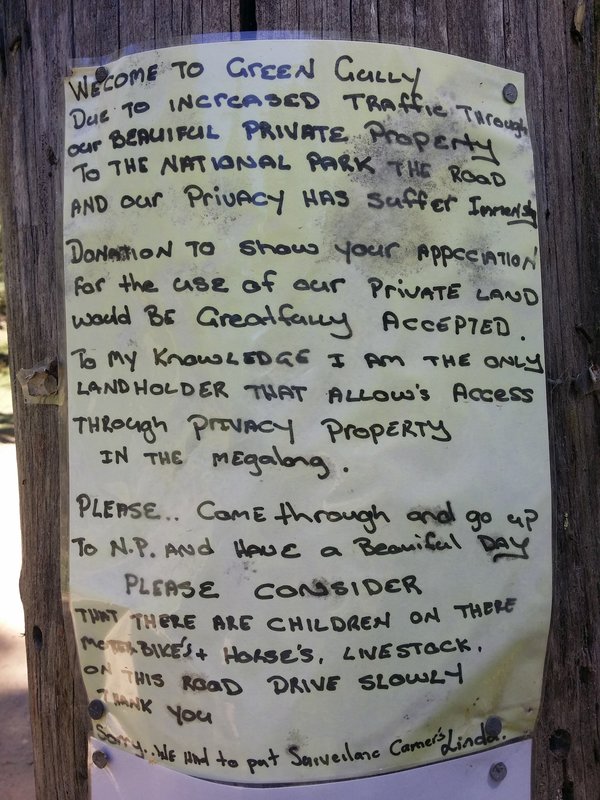 WECOME TO GREEN GULLY
DUE TO INCREASED TRAFFIC THROUGH
OUR BEAUIFUL PRIVATE PROPERTY
TO THE NATIONAL PARK THE ROAD
AND OUR PRIVACY HAS SUFFER IMMENSLY
DONATION TO SHOW YOUR APPCCIATION
FOR THE USE OF OUR PRIVATE LAND
WOULD BE GREATFULLY ACCEPTED.
TO MY KNOWLEDGE I AM THE ONLY
LANDHOLDER THAT ALLOW'S ACCESS
THROUGH PRIVACY PROPERTY
IN THE MEGALONG.
PLEASE.. COME THROUGH AND GO UP
TO N.P. AND HAVE A BEAUIFUL DAY
PLEASE CONSIDER
THAT THERE ARE CHILDREN ON THERE
MOTERBIKE'S + HORSE'S, LIVESTOCK,
ON THIS ROAD DRIVE SLOWLY
THANK YOU
Sorry. WE HAD to put Surveilanc Camer's Linda.